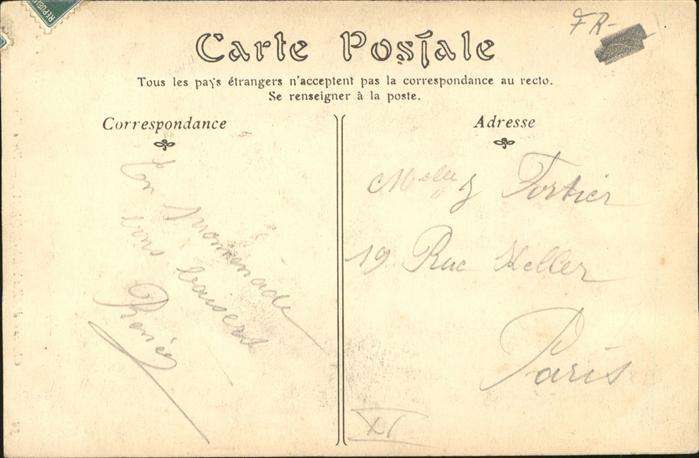 RÉPUBL
FR-
Carte Postale
Tous les pays étrangers n'acceptent pas la correspondance au recto.
Se renseigner à la poste.
Correspondance
En promenade
bons baisers
Renée
Adresse
Melle Fortier
19 Rue Keller
Paris
XI